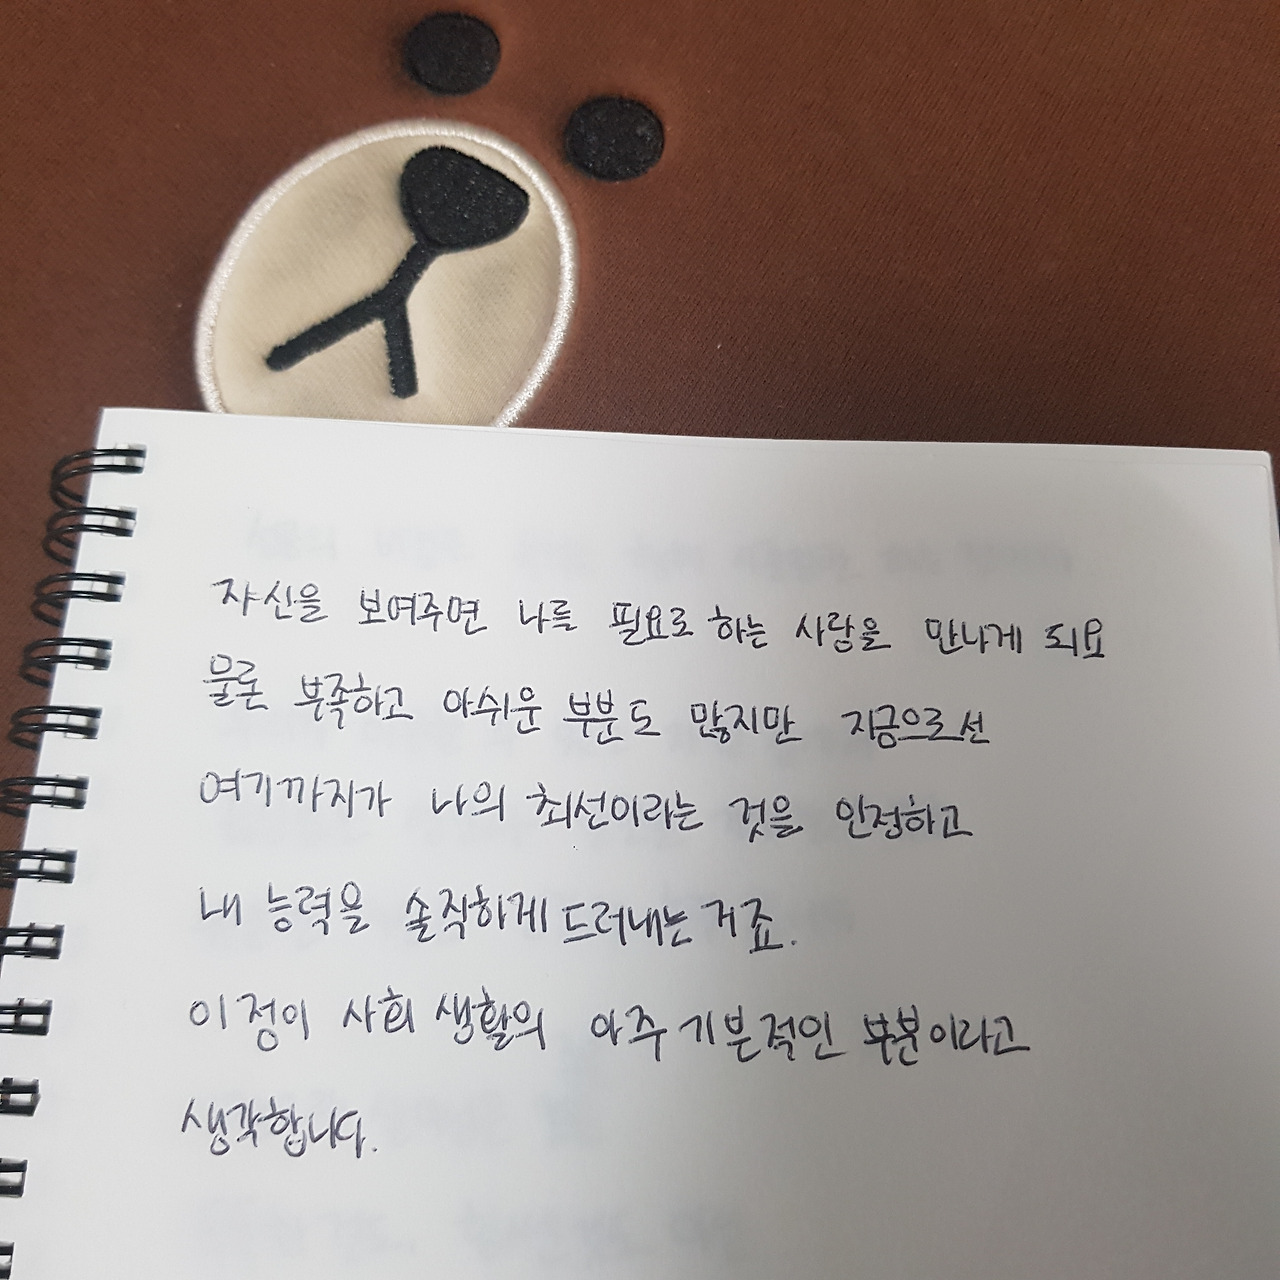 자신을 보여주면 나를 필요로 하는 사람을 만나게 되요
물론 부족하고 아쉬운 부분도 많지만 지금으로선
여기까지가 나의 최선이라는 것을 인정하고
내 능력을 솔직하게 드러내는 거죠.
이점이 사회 생활의 아주 기본적인 부분이라고
생각합니다.